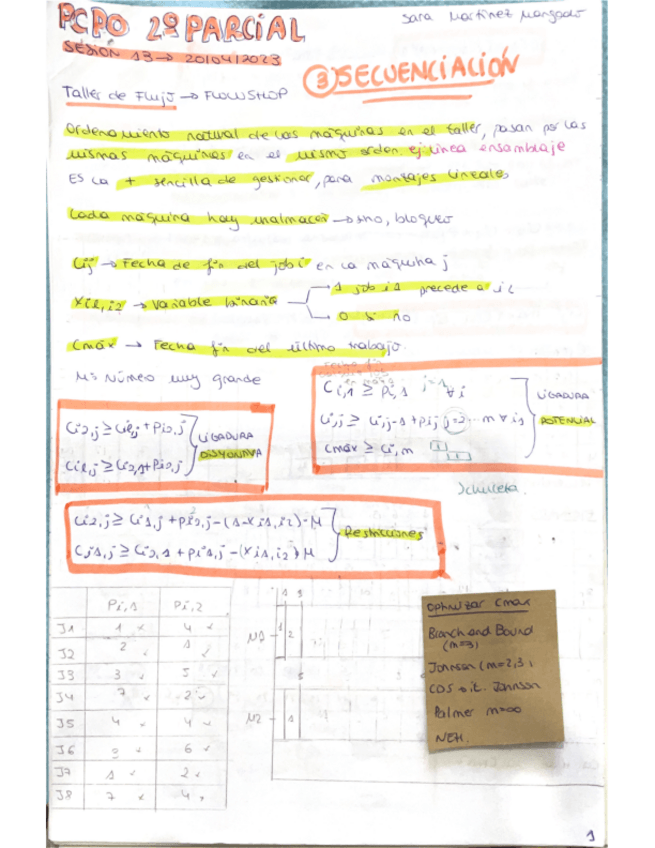 PCPO 2º PARCIAL
Sara Martínez Mangado
SESIÓN 13 → 20/04/2023
③ SECUENCIACIÓN
Taller de Flujo → FLOWSHOP
Ordenamiento natural de las máquinas en el taller, pasan por las
mismas máquinas en el mismo orden. ej línea ensamblaje
ES la + sencilla de gestionar, para montajes lineales
Cada máquina hay un almacén → sino, bloqueo
Cij → Fecha de fin del job i en la máquina j
Xi1,i2 → Variable binaria
1 job i1 precede a i2
0 si no
Cmáx → Fecha fin del último trabajo.
M = Número muy grande
Ci,1 ≥ Pi,1 j=1 ∀i
Ci,j ≥ Ci,j-1 + Pi,j j=2...m ∀i
Cmáx ≥ Ci,m
LIGADURA
POTENCIAL
Ci2,j ≥ Ci1,j + Pi2,j
LIGADURA
DISYUNTIVA
chuleta
Ci2,j ≥ Ci1,j + Pi2,j - (1-Xi1,i2)·M
Restricciones
Pi,1 Pi,2
J1 1 4
J2 2 1
J3 3 5
J4 7 2
J5 4 4
J6 6
J7 1 2
J8 7 4
M1
M2
Optimizar Cmax
Branch and Bound
(m=3)
Johnson (m=2,3)
CDS
Johnson
Palmer m=∞
NEH.
1